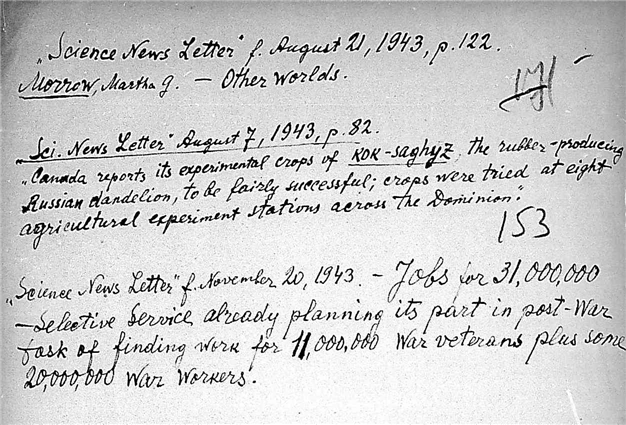 „Science News Letter" f. August 21, 1943, p. 122.
Morrow, Martha G. — Other Worlds.
171
„Sci. News Letter" August 7, 1943, p. 82.
„Canada reports its experimental crops of kok-saghyz, the rubber-producing
Russian dandelion, to be fairly successful; crops were tried at eight
agricultural experiment stations across the Dominion."
153
„Science News Letter" f. November 20, 1943. — Jobs for 31,000,000
— Selective Service already planning its part in post-War
task of finding work for 11,000,000 War veterans plus some
20,000,000 War Workers.